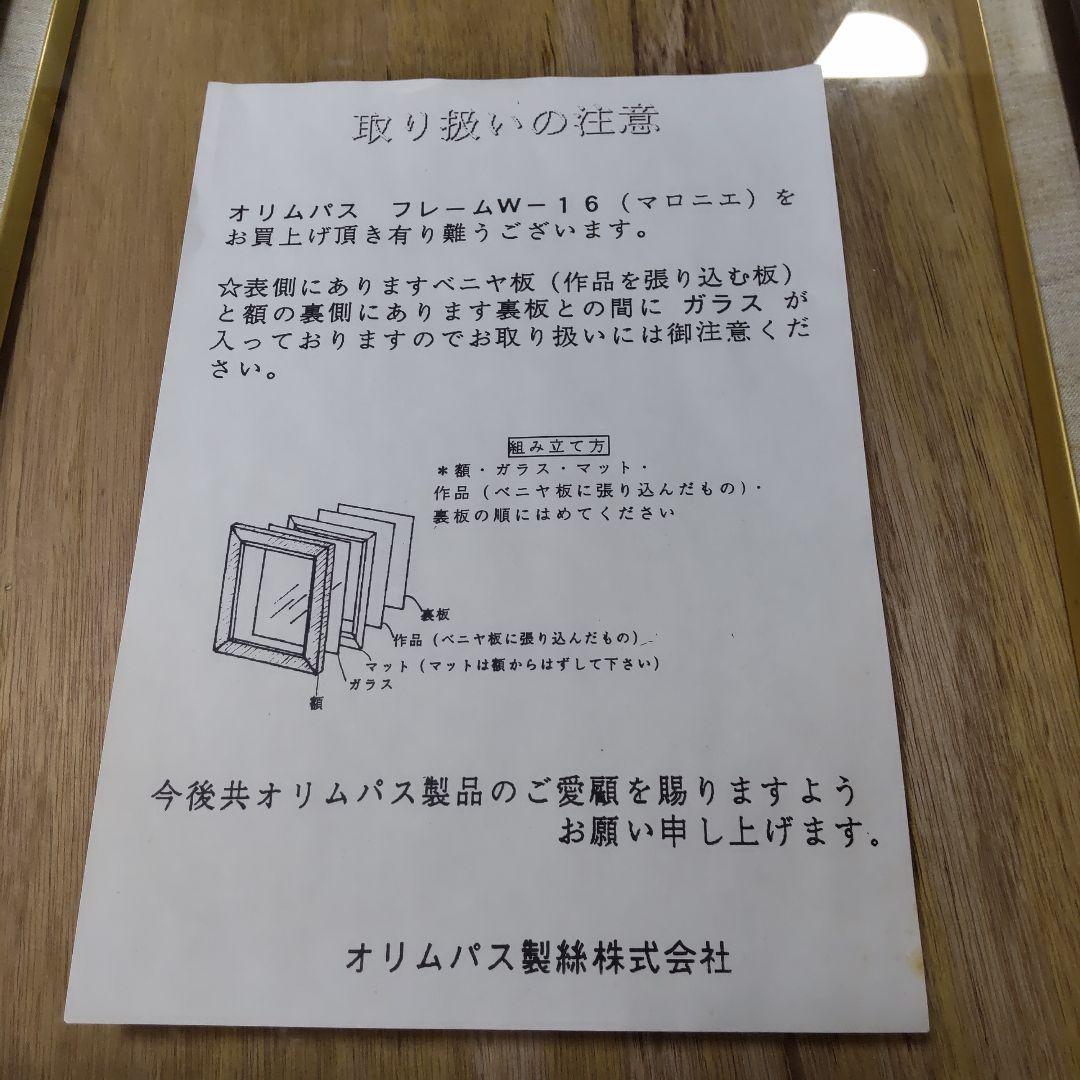 取り扱いの注意
オリムパス　フレームW－16（マロニエ）を
お買上げ頂き有り難うございます。
☆表側にありますベニヤ板（作品を張り込む板）
と額の裏側にあります裏板との間に ガラス が
入っておりますのでお取り扱いには御注意くだ
さい。
組み立て方
＊額・ガラス・マット・
作品（ベニヤ板に張り込んだもの）・
裏板の順にはめてください
裏板
作品（ベニヤ板に張り込んだもの）
マット（マットは額からはずして下さい）
ガラス
額
今後共オリムパス製品のご愛顧を賜りますよう
お願い申し上げます。
オリムパス製絲株式会社